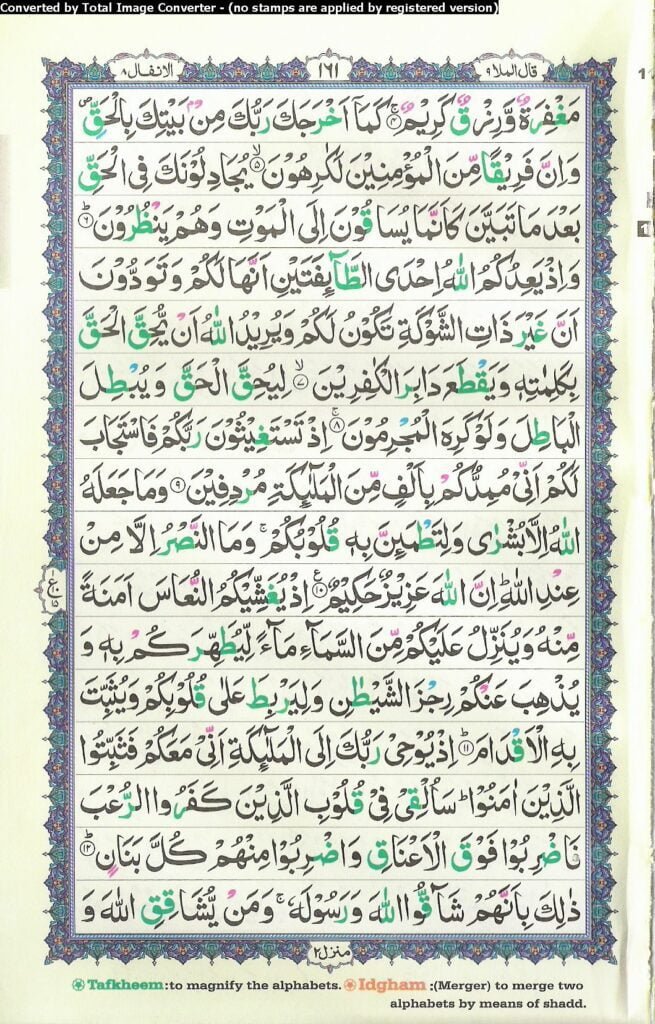 Converted by Total Image Converter - (no stamps are applied by registered version)
قال الملا ٩ ١٦١ الانفال ٨
مَغْفِرَةٌ وَّرِزْقٌ كَرِيْمٌ ۚ۴ كَمَاۤ اَخْرَجَكَ رَبُّكَ مِنْۢ بَيْتِكَ بِالْحَقِّ ۪
وَاِنَّ فَرِيْقًا مِّنَ الْمُؤْمِنِيْنَ لَكٰرِهُوْنَ ۙ۵ يُجَادِلُوْنَكَ فِى الْحَقِّ
بَعْدَ مَا تَبَيَّنَ كَاَنَّمَا يُسَاقُوْنَ اِلَى الْمَوْتِ وَهُمْ يَنْظُرُوْنَ ؕ۶
وَاِذْ يَعِدُكُمُ اللّٰهُ اِحْدَى الطَّآئِفَتَيْنِ اَنَّهَا لَكُمْ وَتَوَدُّوْنَ
اَنَّ غَيْرَ ذَاتِ الشَّوْكَةِ تَكُوْنُ لَكُمْ وَيُرِيْدُ اللّٰهُ اَنْ يُّحِقَّ الْحَقَّ
بِكَلِمٰتِهٖ وَيَقْطَعَ دَابِرَ الْكٰفِرِيْنَ ۙ۷ لِيُحِقَّ الْحَقَّ وَيُبْطِلَ
الْبَاطِلَ وَلَوْ كَرِهَ الْمُجْرِمُوْنَ ۚ۸ اِذْ تَسْتَغِيْثُوْنَ رَبَّكُمْ فَاسْتَجَابَ
لَكُمْ اَنِّىْ مُمِدُّكُمْ بِاَلْفٍ مِّنَ الْمَلٰٓئِكَةِ مُرْدِفِيْنَ ۹ وَمَا جَعَلَهُ
اللّٰهُ اِلَّا بُشْرٰى وَلِتَطْمَئِنَّ بِهٖ قُلُوْبُكُمْ ۚ وَمَا النَّصْرُ اِلَّا مِنْ
عِنْدِ اللّٰهِ ؕ اِنَّ اللّٰهَ عَزِيْزٌ حَكِيْمٌ ۱۰ اِذْ يُغَشِّيْكُمُ النُّعَاسَ اَمَنَةً
مِّنْهُ وَيُنَزِّلُ عَلَيْكُمْ مِّنَ السَّمَآءِ مَآءً لِّيُطَهِّرَكُمْ بِهٖ وَ
يُذْهِبَ عَنْكُمْ رِجْزَ الشَّيْطٰنِ وَلِيَرْبِطَ عَلٰى قُلُوْبِكُمْ وَيُثَبِّتَ
بِهِ الْاَقْدَامَ ؕ۱۱ اِذْ يُوْحِىْ رَبُّكَ اِلَى الْمَلٰٓئِكَةِ اَنِّىْ مَعَكُمْ فَثَبِّتُوا
الَّذِيْنَ اٰمَنُوْا ؕ سَاُلْقِىْ فِىْ قُلُوْبِ الَّذِيْنَ كَفَرُوا الرُّعْبَ
فَاضْرِبُوْا فَوْقَ الْاَعْنَاقِ وَاضْرِبُوْا مِنْهُمْ كُلَّ بَنَانٍ ؕ۱۲
ذٰلِكَ بِاَنَّهُمْ شَآقُّوا اللّٰهَ وَرَسُوْلَهٗ ۚ وَمَنْ يُّشَاقِقِ اللّٰهَ وَ
منزل ٢
Tafkheem:to magnify the alphabets. Idgham :(Merger) to merge two
alphabets by means of shadd.